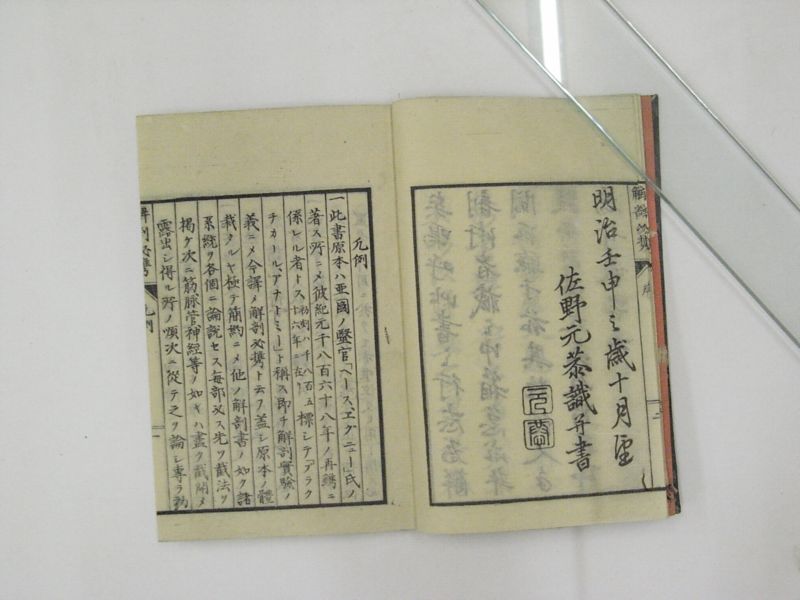 明治壬申之歳十月望
佐野元恭識并書
凡例
一此書原本ハ亜國ノ醫官「ヘース、エグニュー」氏ノ
著ス所ニメ彼紀元千八百六十八年ノ再鐫ニ
係レル者トス初刻ハ千八百五十六年ニ在リ標シテ「プラク
チカールアナトミー」ト稱ス即チ解剖實驗ノ
義ニメ今譯メ解剖必携ト云フ蓋シ原本ノ體
裁タルヤ極テ簡約ニメ他ノ解剖書ノ如ク諸
系統ヲ各個ニ論説セス毎部必ス先ツ截法ヲ
掲ケ次ニ筋脈管神經等ノ如キハ盡ク截開メ
露出シ得ル所ノ順次ニ從テ之ヲ論シ專ラ
凡例